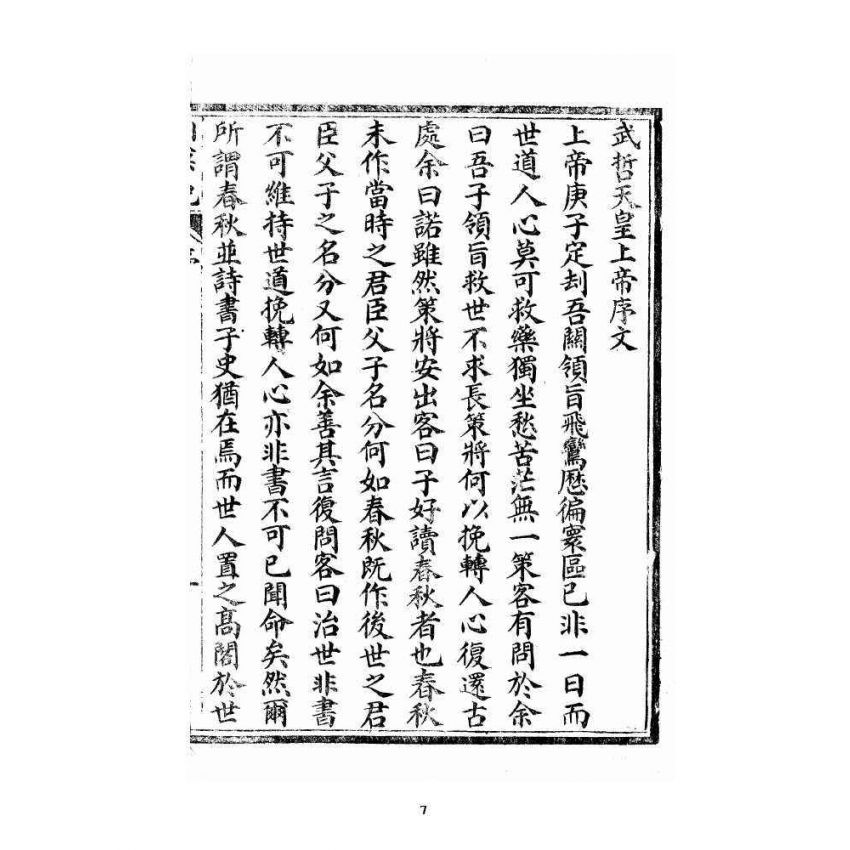 武哲天皇上帝序文
上帝庚子定刦吾關領旨飛鸞歷徧寰區已非一日而
世道人心莫可救藥獨坐愁苦茫無一策客有問於余
曰吾子領旨救世不求長策將何以挽轉人心復還古
處余曰諾雖然策將安出客曰子好讀春秋者也春秋
未作當時之君臣父子名分何如春秋既作後世之君
臣父子之名分又何如余善其言復問客曰治世非書
不可維持世道挽轉人心亦非書不可已聞命矣然爾
所謂春秋並詩書子史猶在焉而世人置之高閣於世
7